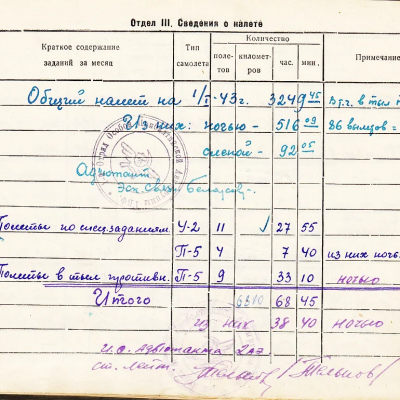 Отдел III. Сведения о налете
Краткое содержание заданий за месяц
Тип самолета
Количество
полетов
километров
час.
мин.
Примечание
Общий налет на 1/I-43г. 3249 45 В т.ч. в тыл
Из них: ночью - 516 09 86 вылетов =
слепой - 92 05
Адъютант
Полеты по спецзаданиям У-2 11 27 55
П-5 4 7 40 из них ночь
Полеты в тыл противн. П-5 9 33 10 ночью
Итого 6810 68 45
из них 38 40 ночью
И.о. адъютанта 2 АЭ
ст. лейт.